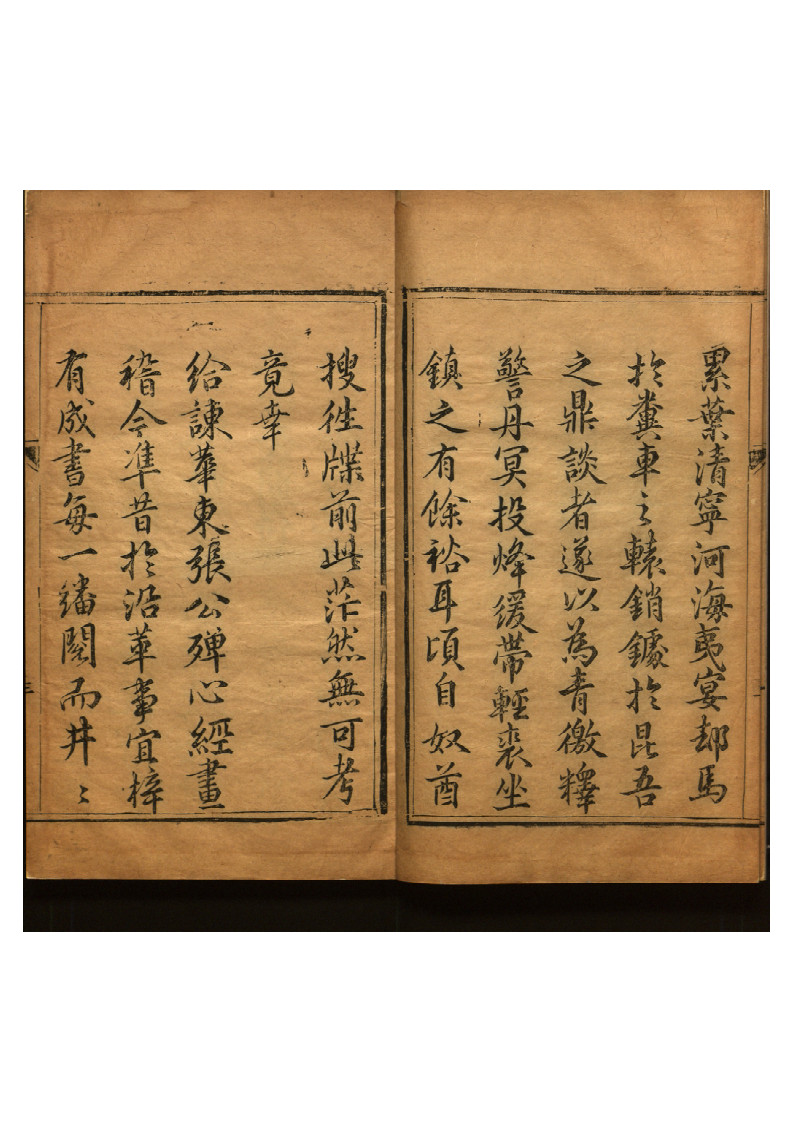 累葉清寧河海夷宴却馬
於糞車之轅銷鐻於昆吾
之鼎談者遂以為青徼釋
警丹冥投烽緩帶輕裘坐
鎮之有餘裕耳頃自奴酋
搜徃牒前此茫然無可考
竟幸
給諫華東張公殫心經畫
稽令準昔於沿革事宜梓
有成書每一繙閱而井〻
二
三